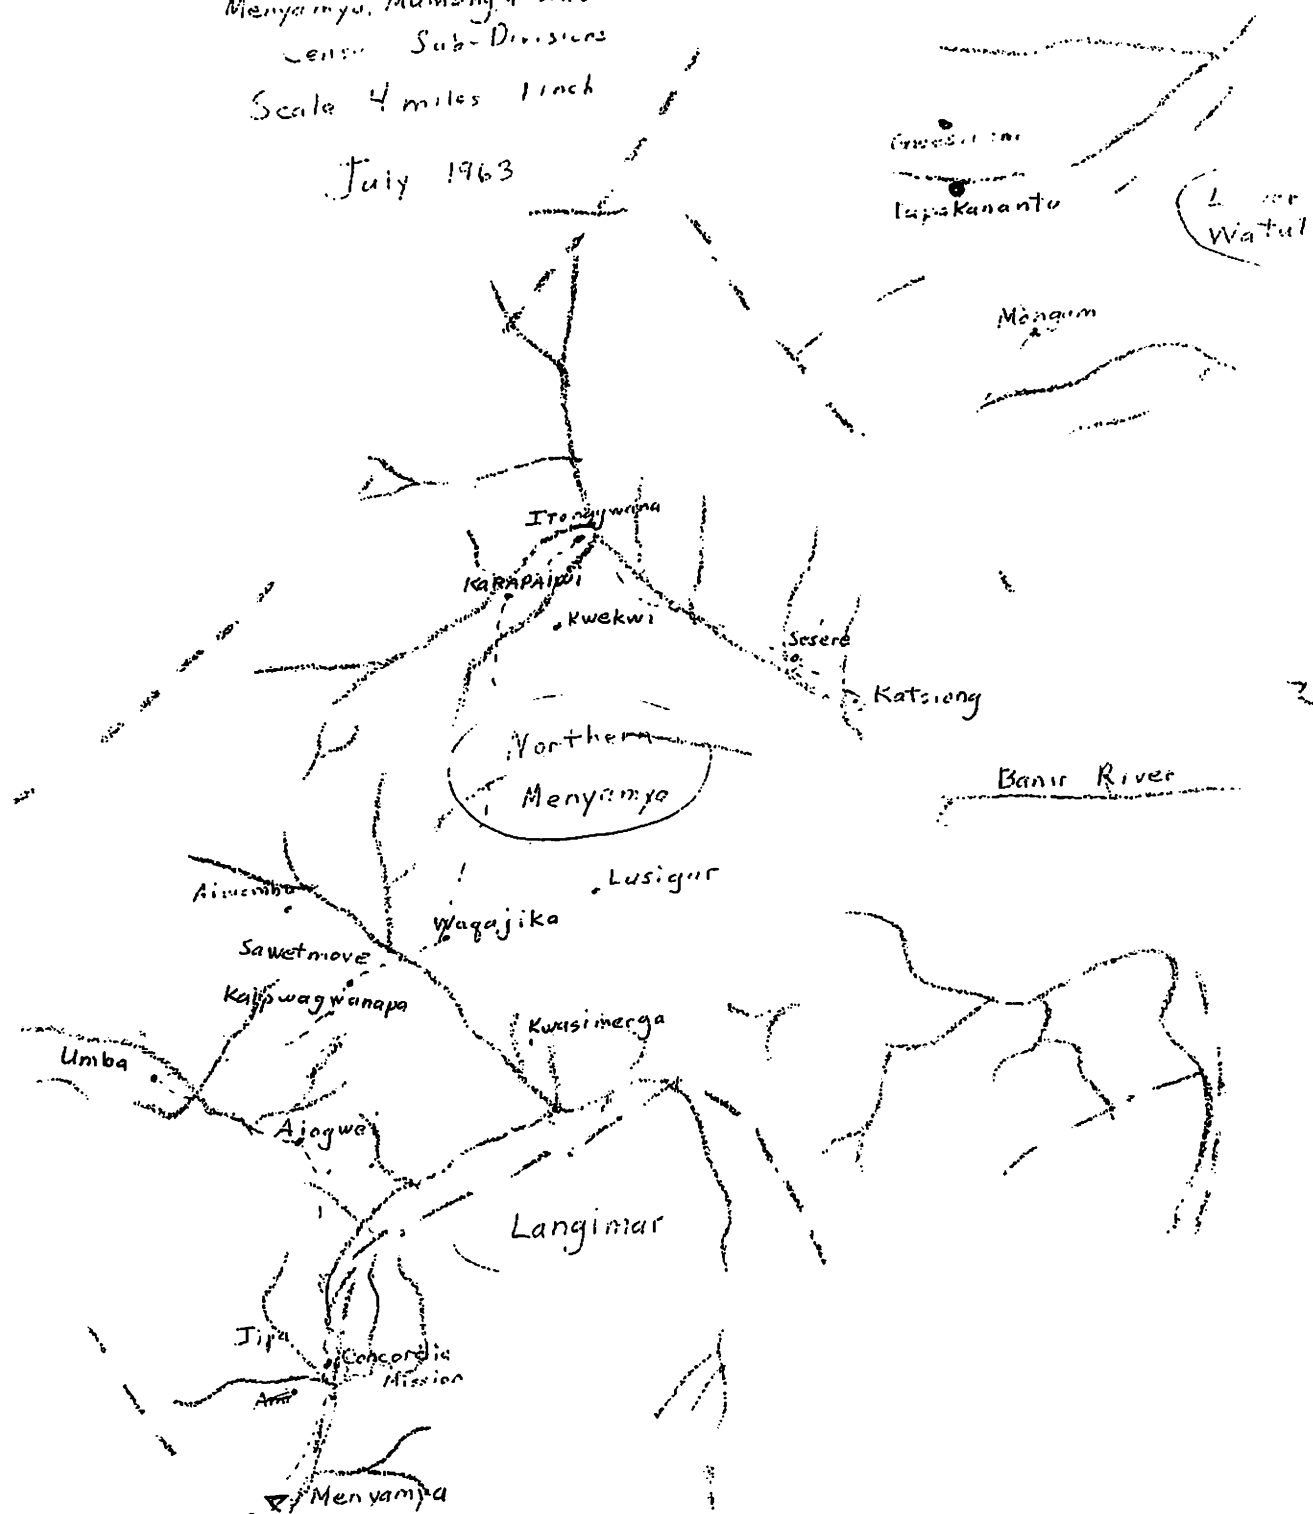 Menyamya, Mumeng
Sub-Divisions
Scale 4 miles 1 inch
July 1963
Tapakananto
Watut
Mangum
Itongwana
KARAPAIWI
Kwekwi
Sesere
Katsiong
Northern
Menyamya
Banir River
Lusigur
Waqajika
Sawetmove
Kaipwagwanapa
Kwasimerga
Umba
Ajogwe
Langimar
Jipa
Concordia
Mission
Menyamya